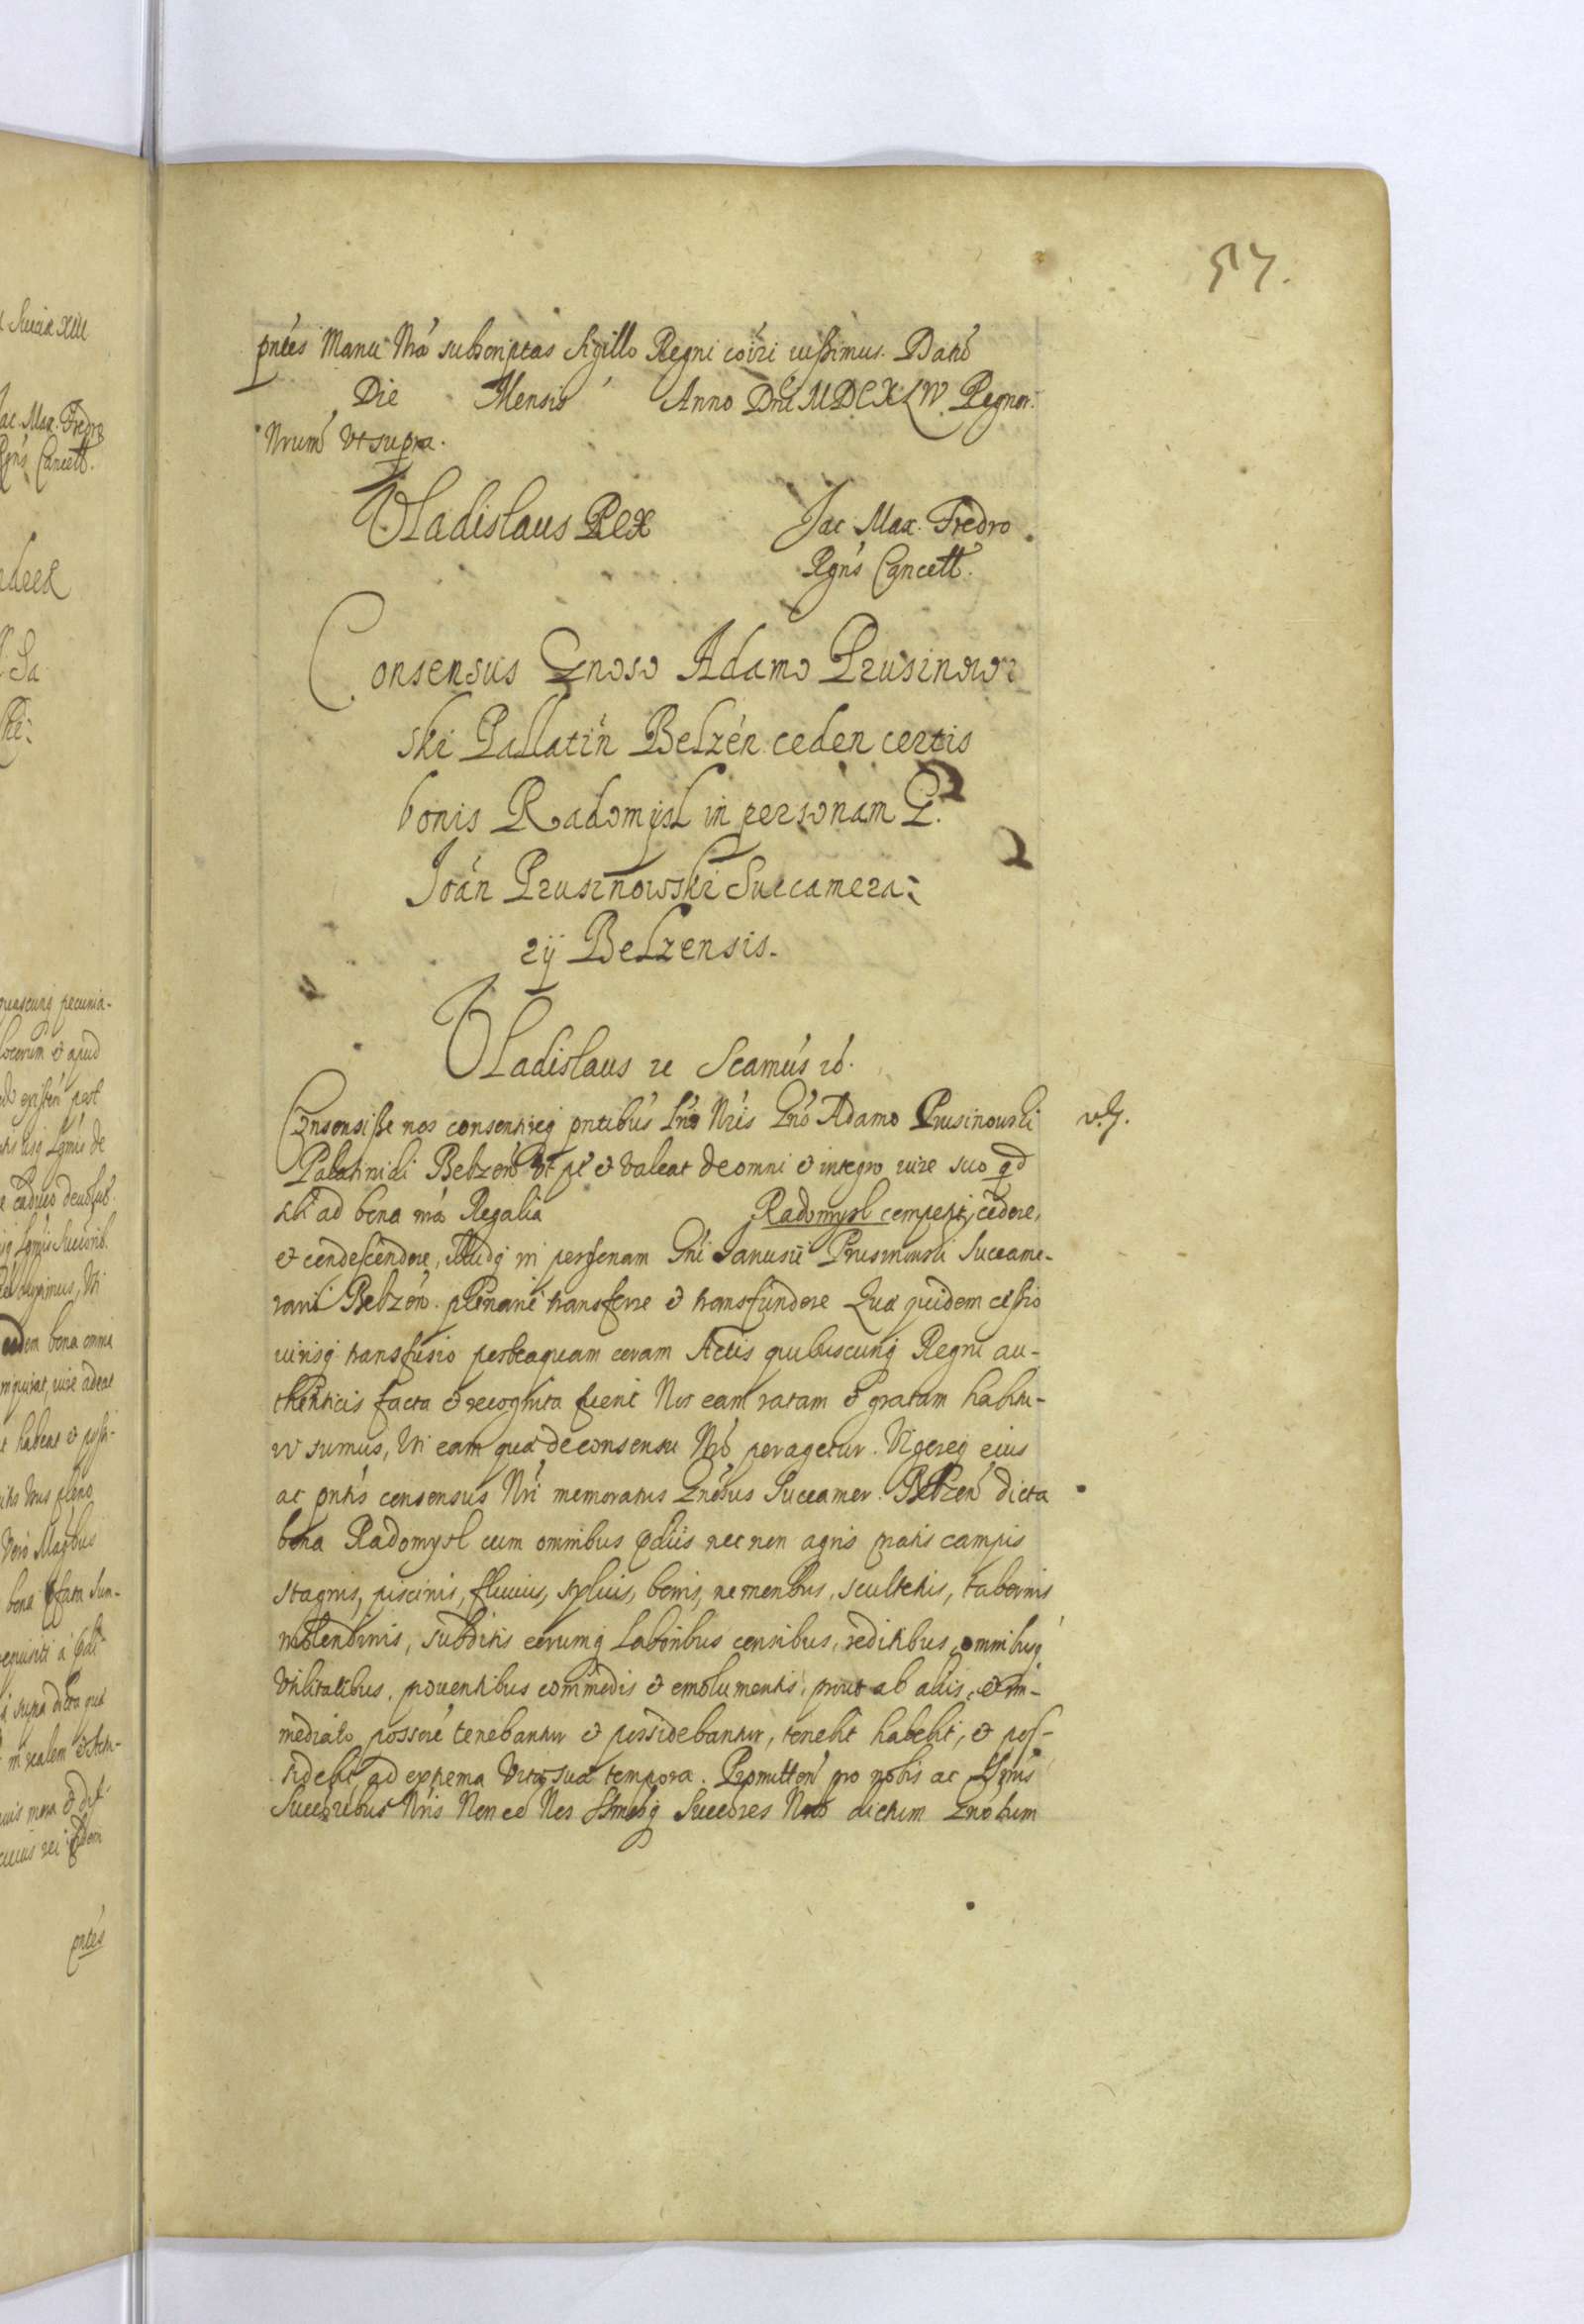 57.
pntes Manu Nra subscriptas Sigillo Regni coiri iussimus. Datu
Die Mensis Anno Dni MDCXLIV. Regnor.
Nrum ut supra.
Vladislaus Rex Jac. Max. Fredro
Rgns Cancell.
Consensus Gnoso Adamo Prusinow-
ski Pallatin Belzen. ceden certis
bonis Radomysl in personam G.
Joan Prusinowski Succamera-
rÿ Belzensis.
Vladislaus
Consensisse nos consentireq pntibus Lris Nris Gnso Adamo Prusinowski
Palatinidi Belzen. ut pt et valeat de omni et integro iure suo qd
sibi ad bona nra Regalia Radomysl competit, cedere,
et condescendere, illudq in personam Gni Janusii Prusinowski Succame-
rarii Belzen. plenarie transferre et transfundere Quæ quidem cessio
iurisq transfusio posteaquam coram Actis quibuscunq Regni au-
thenticis facta et recognita fuerit Nos eam ratam et gratam habitu-
ri sumus, Uti eam quæ de consensu Nro peragetur. Vigoreq eius
ac pntis consensus Nri memoratus Gnosus Succamer. Belzen dicta
bona Radomysl cum omnibus pdiis nec non agris pratis campis
stagnis, piscinis, fluviis, syluis, borris, nemoribus, scultetis, tabernis
molendinis, subditis eorumq laboribus censibus, reditibus, omnibusq
utilitatibus, proventibus commodis et emolumentis, prout ab aliis, et im-
mediato possore tenebantur et possidebantur, tenebit habebit, et pos-
sidebit, ad extrema vitæ suæ tempora. Promitten pro nobis ac Srmis
Succoribus Nris Non ee Nos Srmosq Succores Nros dictum Gnosum
v. g.